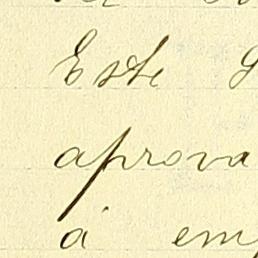 Este
aprova
á em